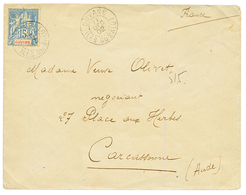 France
Madame Veuve Olivet
negociant
515.
27 Place aux Herbes
Carcassonne
(Aude)